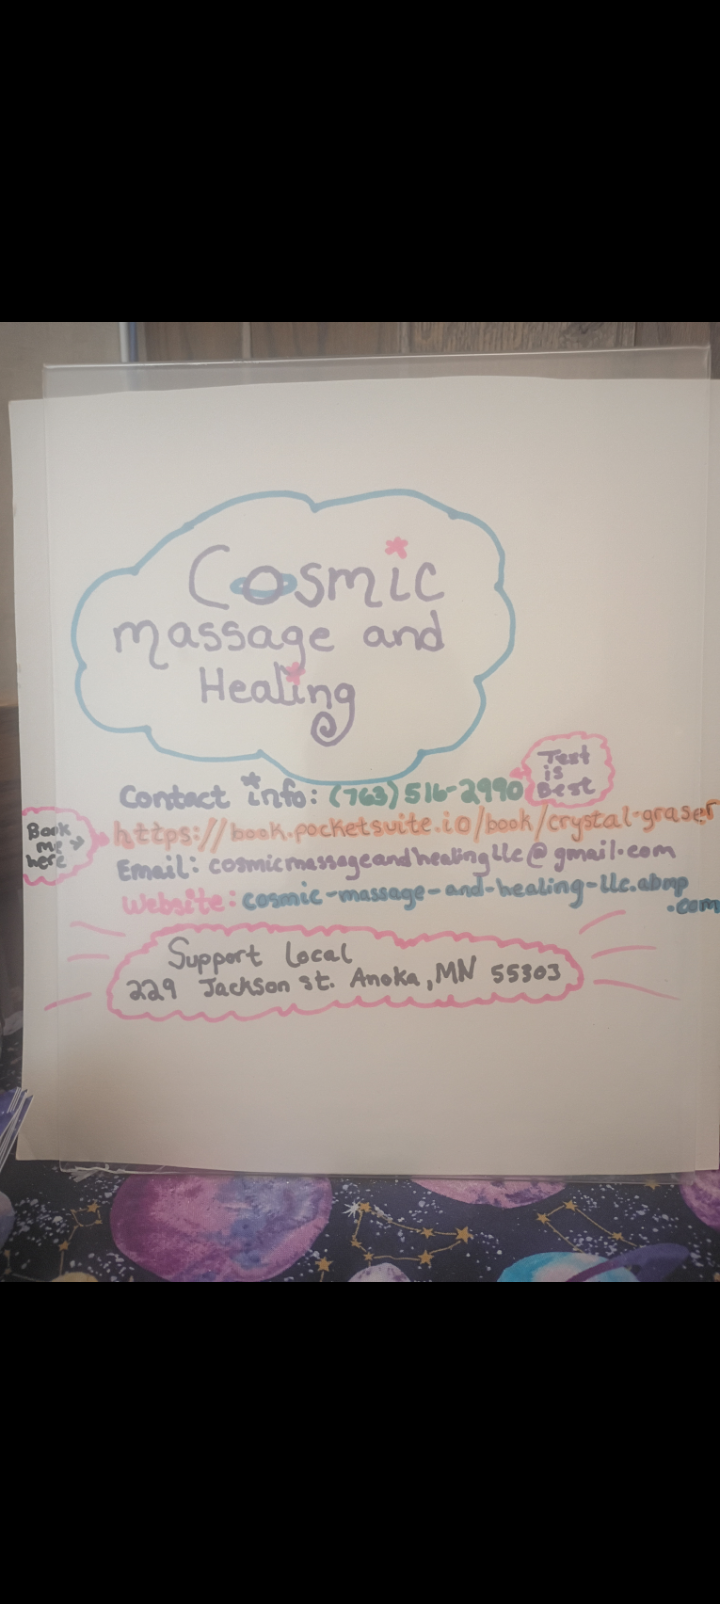 Cosmic
massage and
Healing
Contact info: (763) 516-2990
Text
is
Best
Book
me
here
https://book.pocketsuite.io/book/crystal-graser
Email: cosmicmassageandhealingllc@gmail.com
Website: cosmic-massage-and-healing-llc.abmp
.com
Support Local
229 Jackson st. Anoka, MN 55303